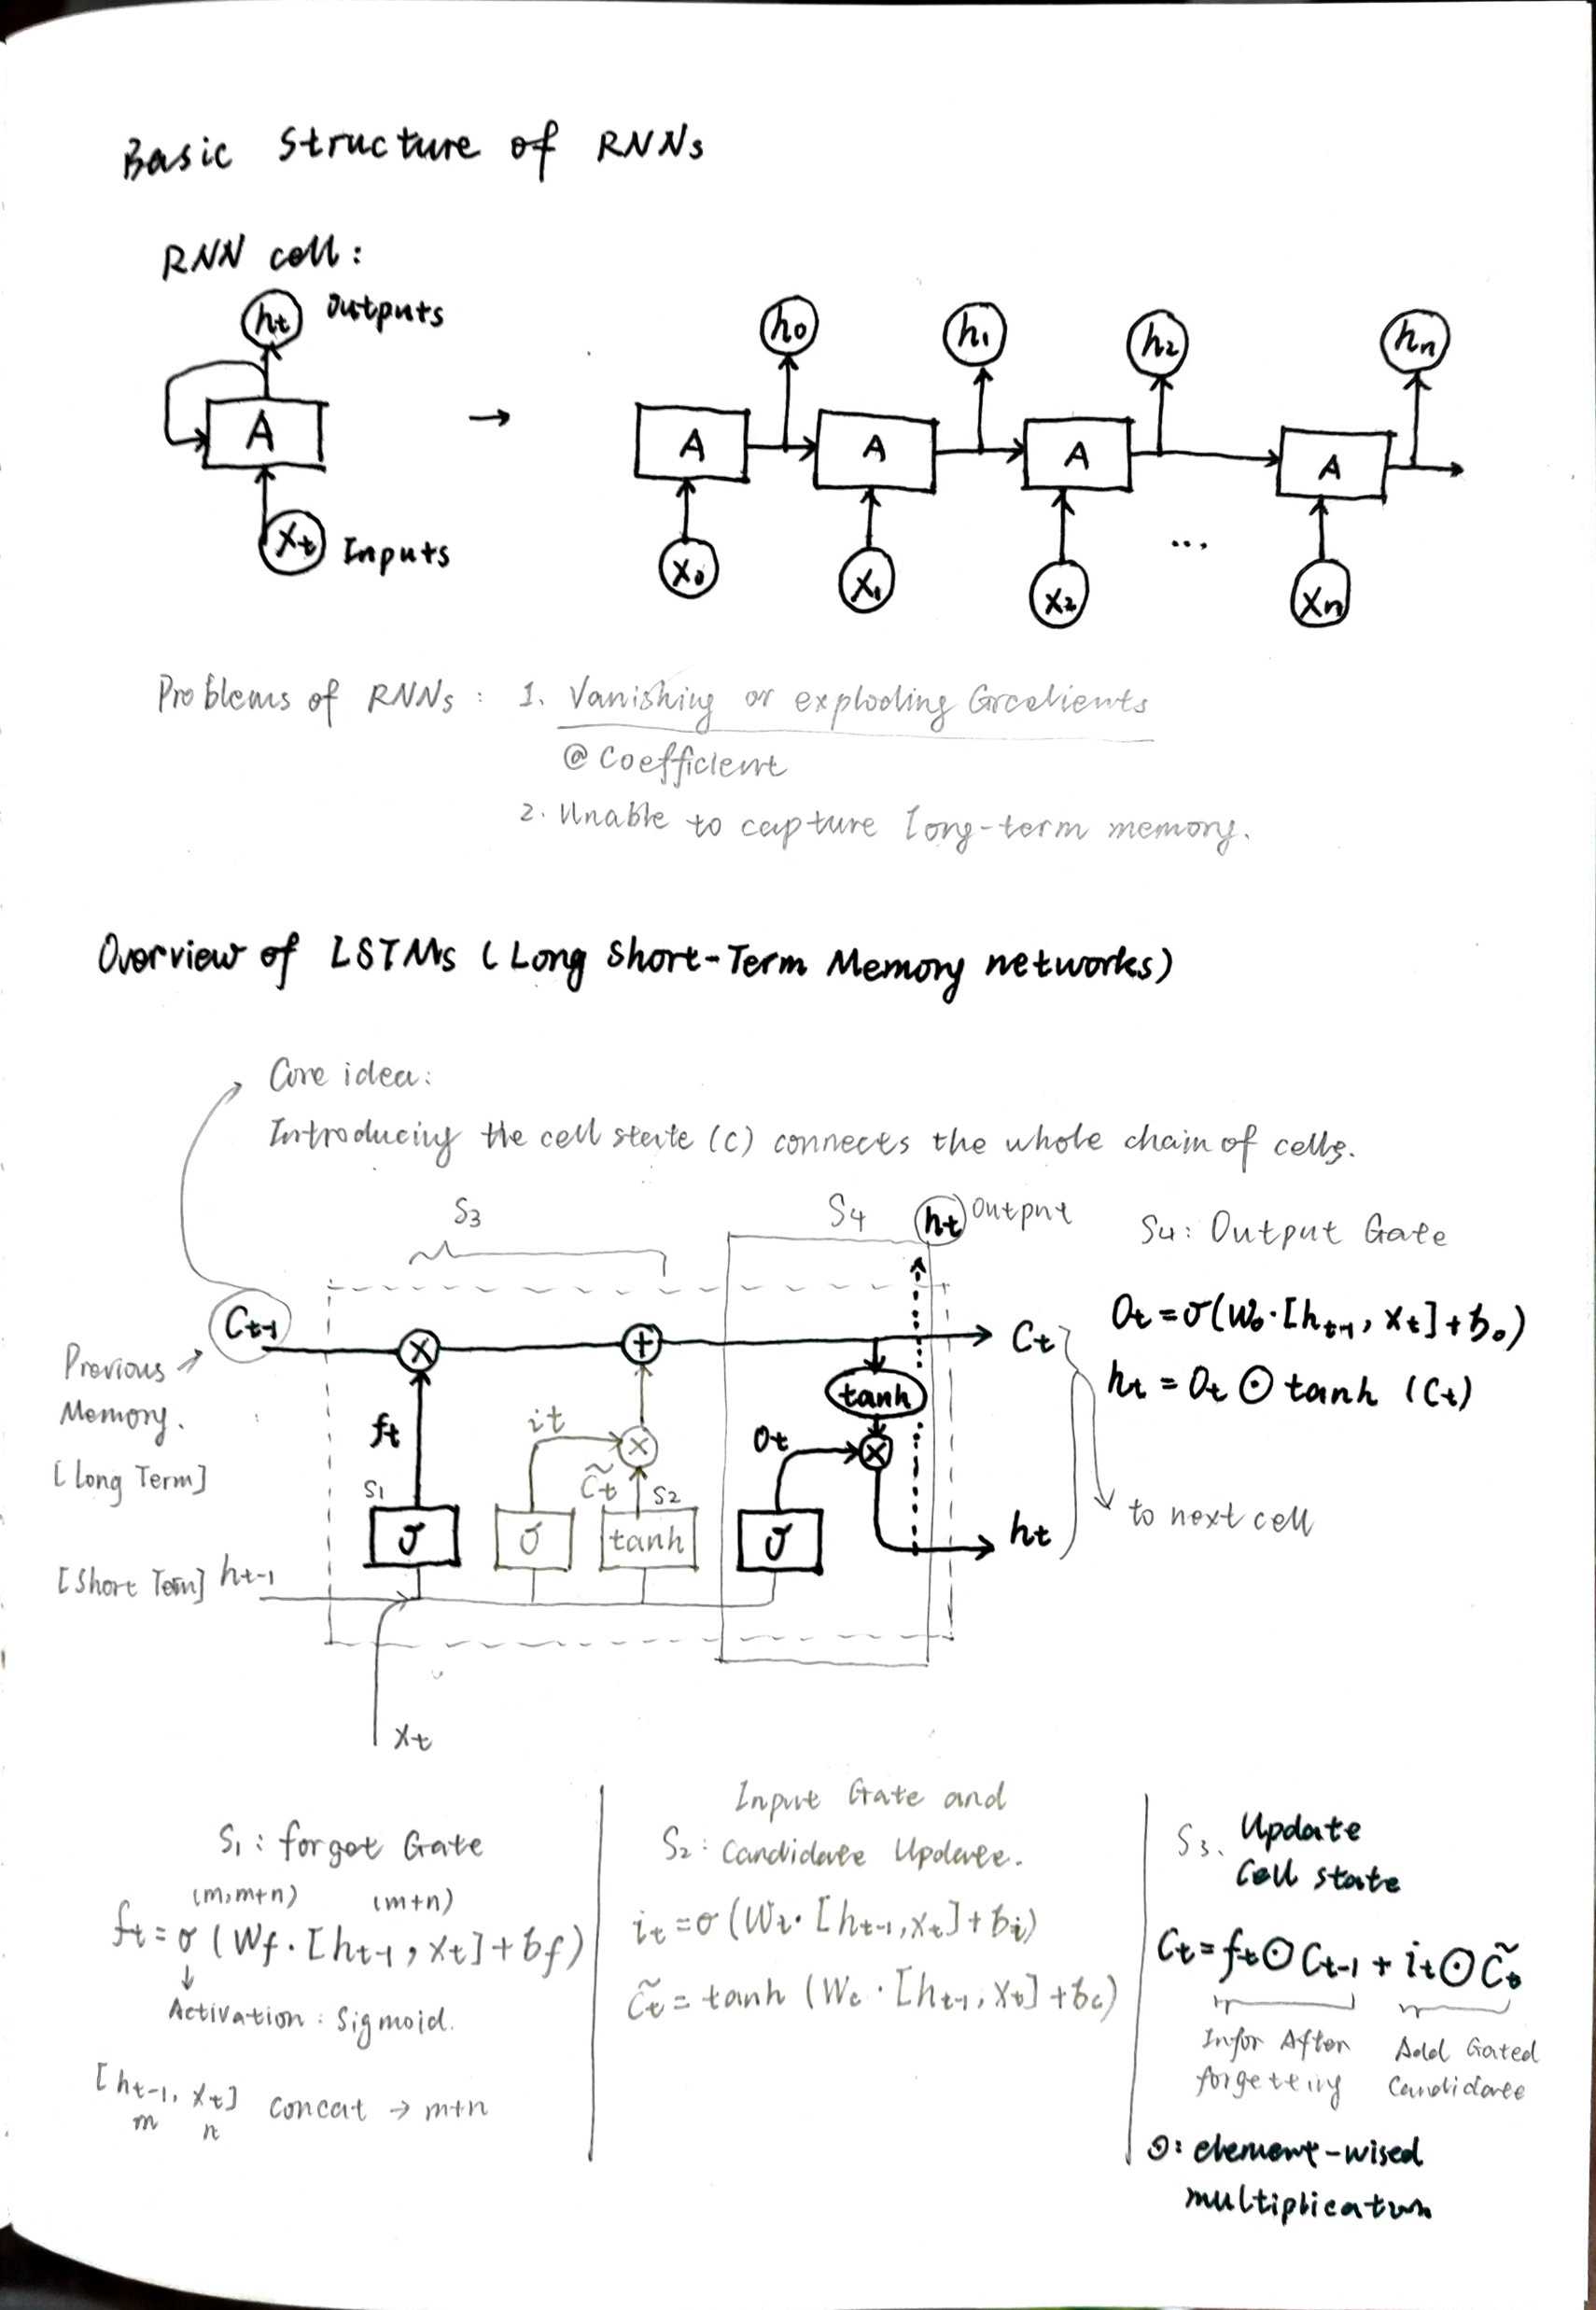 Basic Structure of RNNs
RNN cell:
ht Outputs
A
Xt Inputs
→
h0 h1 h2 hn
A A A A
X0 X1 X2 ... Xn
Problems of RNNs: 1. Vanishing or exploding Gradients
@ Coefficient
2. Unable to capture long-term memory.
Overview of LSTMs (Long Short-Term Memory networks)
Core idea:
Introducing the cell state (C) connects the whole chain of cells.
S3 S4 ht Output
Ct-1 × + Ct
Previous
Memory.
[Long Term]
ft it × C̃t S2 Ot tanh ×
S1 σ σ tanh σ ht
[Short Term] ht-1
Xt
to next cell
S4: Output Gate
Ot = σ(Wo·[ht-1, Xt]+bo)
ht = Ot ⊙ tanh (Ct)
S1: forget Gate
(m,m+n) (m+n)
ft = σ (Wf · [ht-1, Xt] + bf)
↓
Activation: Sigmoid.
[ht-1, Xt] concat → m+n
m n
Input Gate and
S2: Candidate Update.
it = σ (Wi· [ht-1, Xt] + bi)
C̃t = tanh (Wc · [ht-1, Xt] + bc)
S3. Update
Cell state
Ct = ft ⊙ Ct-1 + it ⊙ C̃t
Infor After
forgetting
Add Gated
Candidate
⊙: element-wised
multiplication